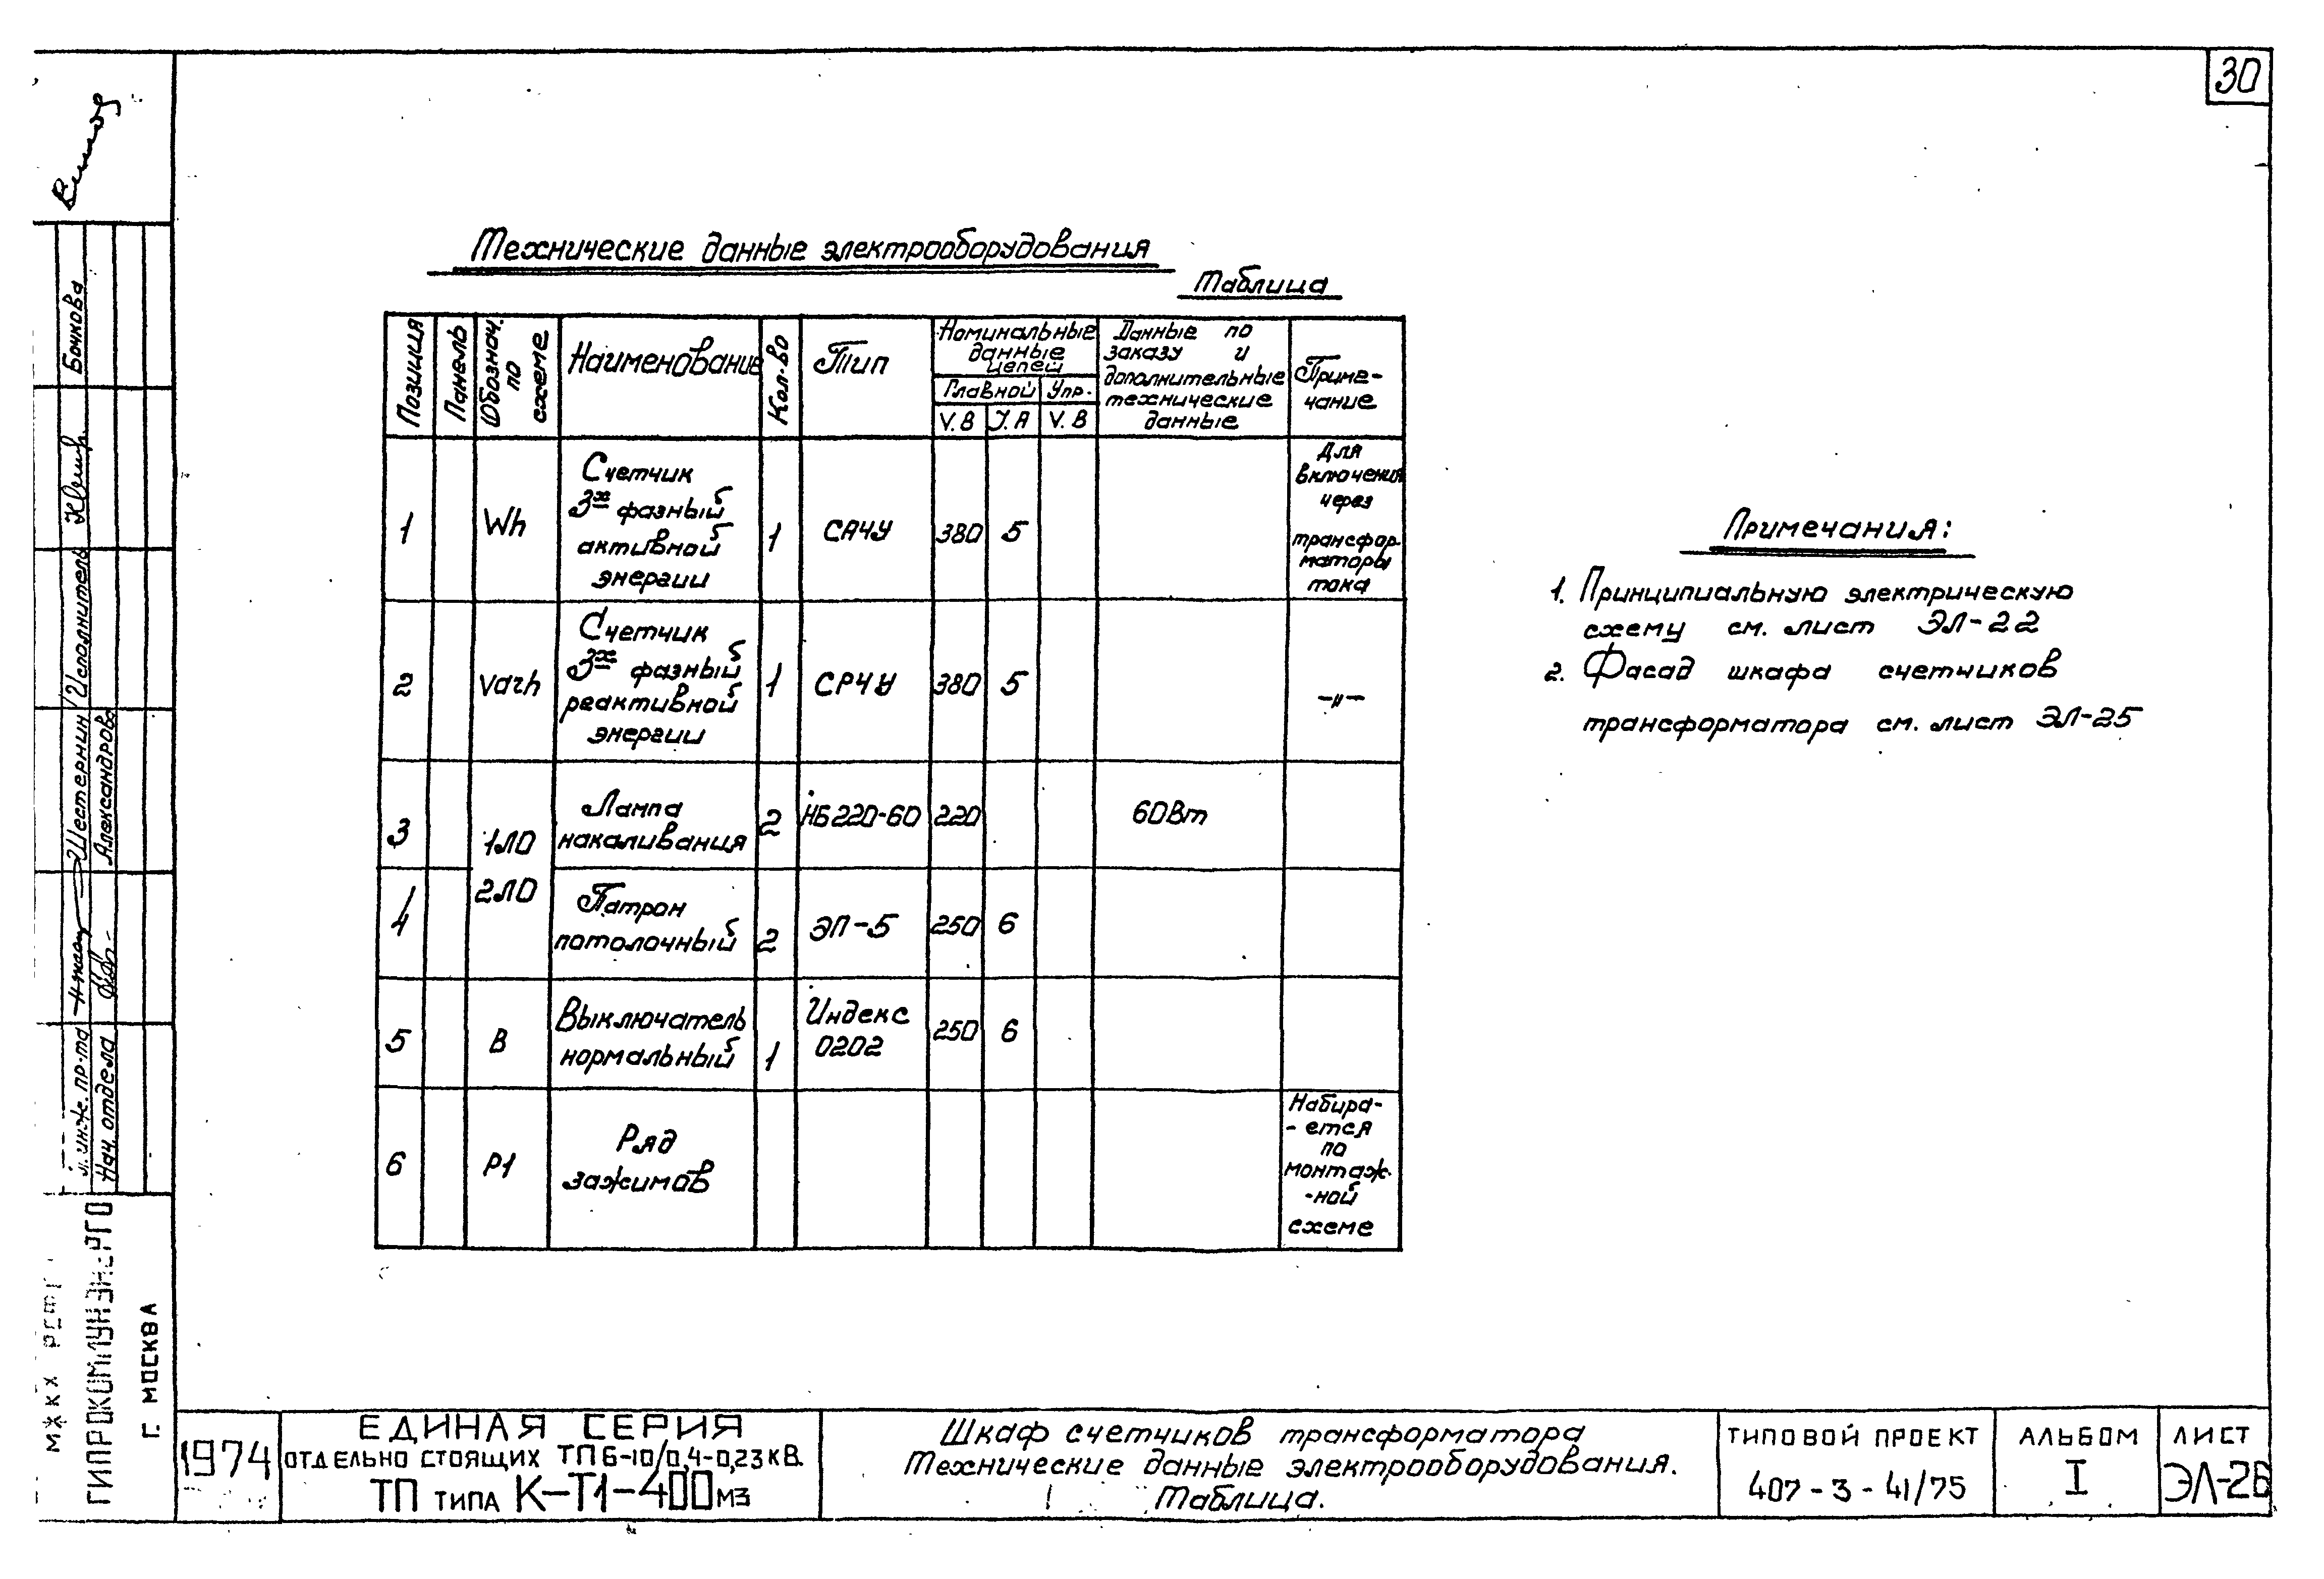 30
Технические данные электрооборудования
Таблица
Позиция
Панель
Обознач. по схеме
Наименование
Кол-во
Тип
Номинальные данные цепей
Главной
Упр.
V.В
J.А
V.В
Данные по заказу и дополнительные технические данные
Приме-
чание
1
Wh
Счетчик
3х фазный
активной
энергии
1
САЧУ
380
5
Для
включения
через
трансфор.
маторы
тока
2
varh
Счетчик
3х фазный
реактивной
энергии
1
СРЧУ
380
5
—"—
3
1ЛО
Лампа
накаливания
2
НБ220-60
220
60Вт
4
2ЛО
Патрон
потолочный
2
ЭП-5
250
6
5
В
Выключатель
нормальный
1
Индекс
0202
250
6
6
Р1
Ряд
зажимов
Набира-
-ется
по
монтаж-
-ной
схеме
Примечания:
1. Принципиальную электрическую
схему см. лист ЭЛ-22
2. Фасад шкафа счетчиков
трансформатора см. лист ЭЛ-25
Бочкова
Исполнитель
Шестернин
Александрова
инж. пр-та
Нач. отдела
МЖКХ РСФ
ГИПРОКОММУНЭНЕРГО
Г. МОСКВА
1974
ЕДИНАЯ СЕРИЯ
ОТДЕЛЬНО СТОЯЩИХ ТП 6-10/0,4-0,23 КВ.
ТП ТИПА К-Т1-400 МЗ
Шкаф счетчиков трансформатора
Технические данные электрооборудования.
Таблица.
ТИПОВОЙ ПРОЕКТ
407-3-41/75
АЛЬБОМ
I
ЛИСТ
ЭЛ-26